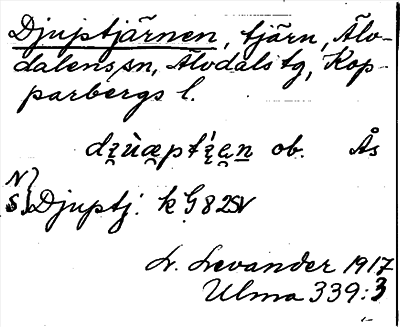 Djuptjärnen, tjärn, Älv-
dalens sn, Älvdals tg, Kop-
parbergs l.
ob. Ås
N
S } Djuptj. k G 82 SV
L. Levander 1917
Ulma 339:3